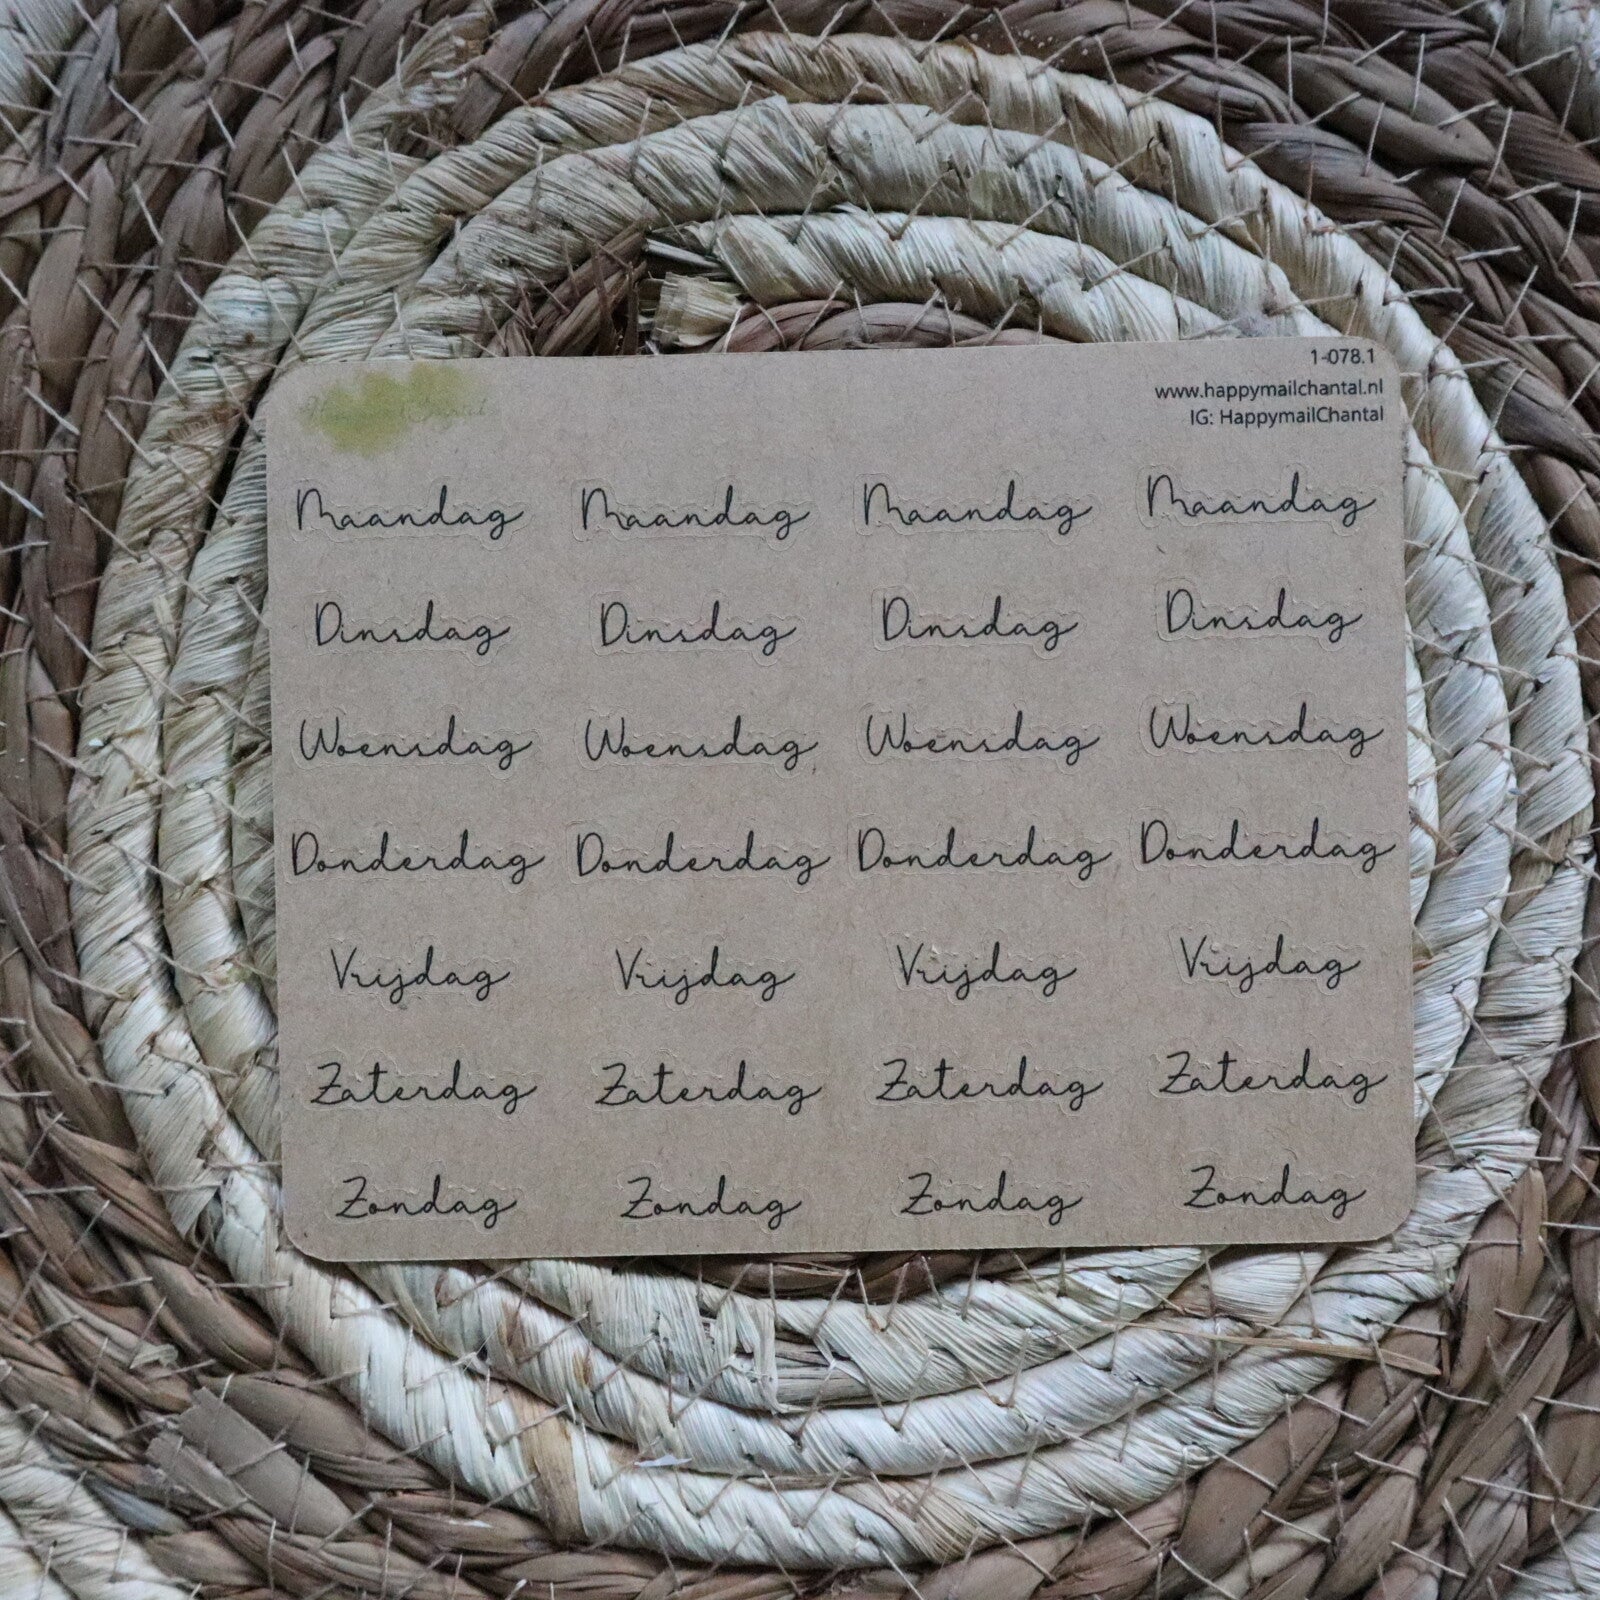 1-078.1
www.happymailchantal.nl
IG: HappymailChantal
Maandag Maandag Maandag Maandag
Dinsdag Dinsdag Dinsdag Dinsdag
Woensdag Woensdag Woensdag Woensdag
Donderdag Donderdag Donderdag Donderdag
Vrijdag Vrijdag Vrijdag Vrijdag
Zaterdag Zaterdag Zaterdag Zaterdag
Zondag Zondag Zondag Zondag